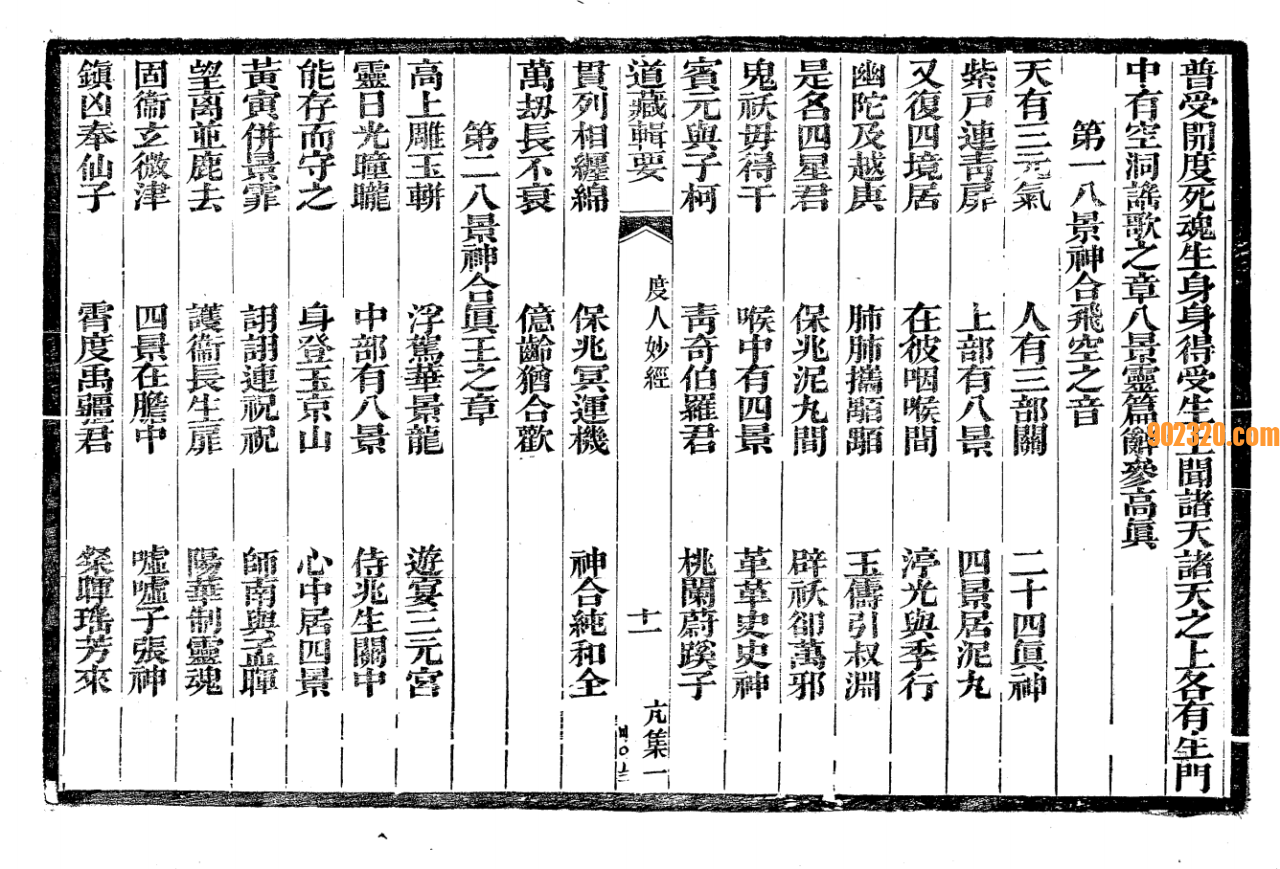 普受開度死魂生身身得受生上聞諸天諸天之上各有生門
中有空洞謠歌之章八景靈篇辭參高眞
第一八景神合飛空之音
天有三元氣 人有三部關 二十四眞神
紫戸連靑扉 上部有八景 四景居泥丸
又復四境居 在彼咽喉間 渟光與季行
幽陀及越庚 肺肺攜 玉儔引叔淵
是名四星君 保兆泥丸間 辟祅卻萬邪
鬼祅毋得干 喉中有四景 革革史史神
賓元與子柯 靑奇伯羅君 桃闌蔚蹊子
道藏輯要 度人妙經 十一 亢集一
貫列相纏綿 保兆冥運機 神合純和全
萬劫長不衰 億齡猶合歡
第二八景神合眞王之章
高上雕玉輧 浮駕華景龍 遊宴三元宮
靈日光曈曨 中部有八景 侍兆生關中
能存而守之 身登玉京山 心中居四景
黃寅併景霏 詡詡連祝祝 師南與孟暉
望离並鹿去 護衞長生扉 陽華制靈魂
固衞玄微津 四景在膽中 噓噓子張神
鎭凶奉仙子 霄度禹疆君 粲暉瑤芳來
902320.com